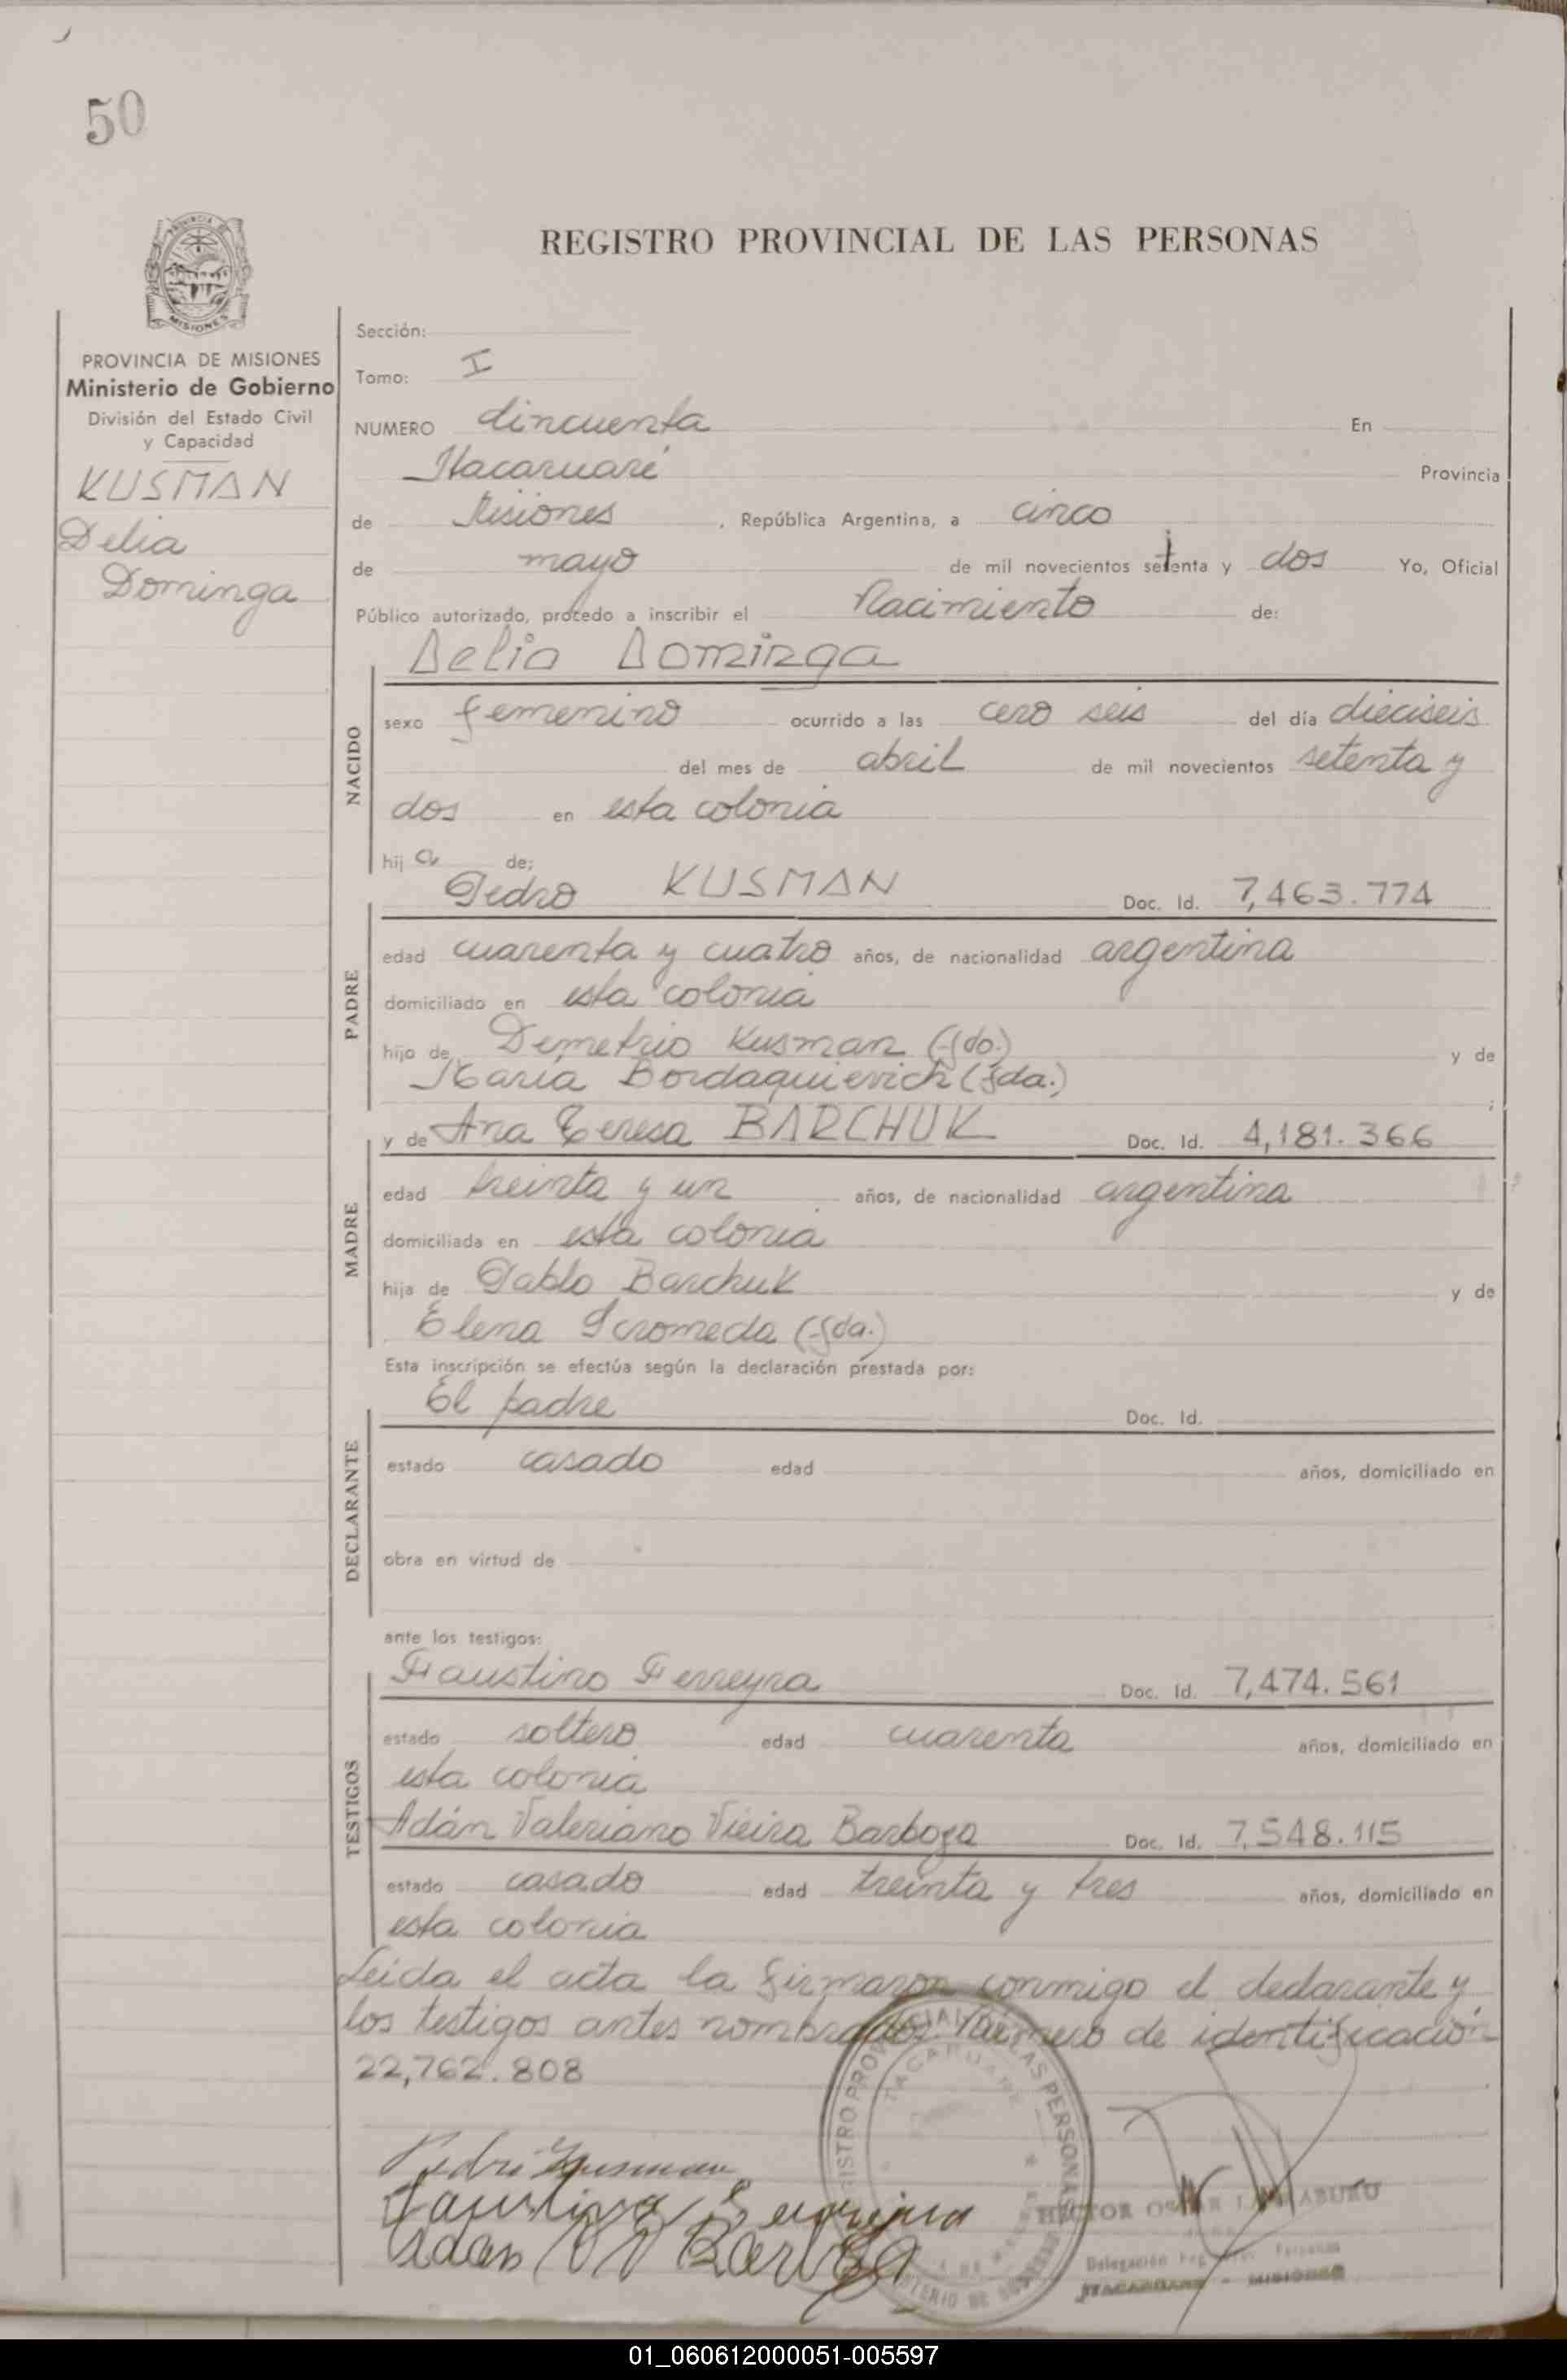 50
REGISTRO PROVINCIAL DE LAS PERSONAS
MISIONES
PROVINCIA DE MISIONES
Ministerio de Gobierno
División del Estado Civil
y Capacidad
KUSMAN
Delia
Dominga
Sección:
Tomo: I
NUMERO cincuenta En
Itacaruaré Provincia
de Misiones, República Argentina, a cinco
de mayo de mil novecientos setenta y dos Yo, Oficial
Público autorizado, procedo a inscribir el Nacimiento de:
Delia Dominga
NACIDO
sexo femenino ocurrido a las cero seis del día dieciseis
del mes de abril de mil novecientos setenta y
dos en esta colonia
hij a de:
Pedro KUSMAN Doc. Id. 7,463.774
PADRE
edad cuarenta y cuatro años, de nacionalidad argentina
domiciliado en esta colonia
hijo de Demetrio Kusman (fdo.) y de
María Bordaquievich (fda.) ;
y de Ana Teresa BARCHUK Doc. Id. 4,181.366
MADRE
edad treinta y un años, de nacionalidad argentina
domiciliada en esta colonia
hija de Pablo Barchuk y de
Elena Scromeda (fda.)
Esta inscripción se efectúa según la declaración prestada por:
El padre Doc. Id.
DECLARANTE
estado casado edad años, domiciliado en
obra en virtud de
ante los testigos:
Faustino Ferreyra Doc. Id. 7,474.561
TESTIGOS
estado soltero edad cuarenta años, domiciliado en
esta colonia
Adán Valeriano Vieira Barboza Doc. Id. 7,548.115
estado casado edad treinta y tres años, domiciliado en
esta colonia
Leida el acta la firmaron conmigo el declarante y
los testigos antes nombrados. Número de identificación
22,762.808
Pedro Kusman
Faustino Ferreyra
Adan V V Barboza
HECTOR OSCAR
Delegación
ITACARUARE - MISIONES
01_060612000051-005597